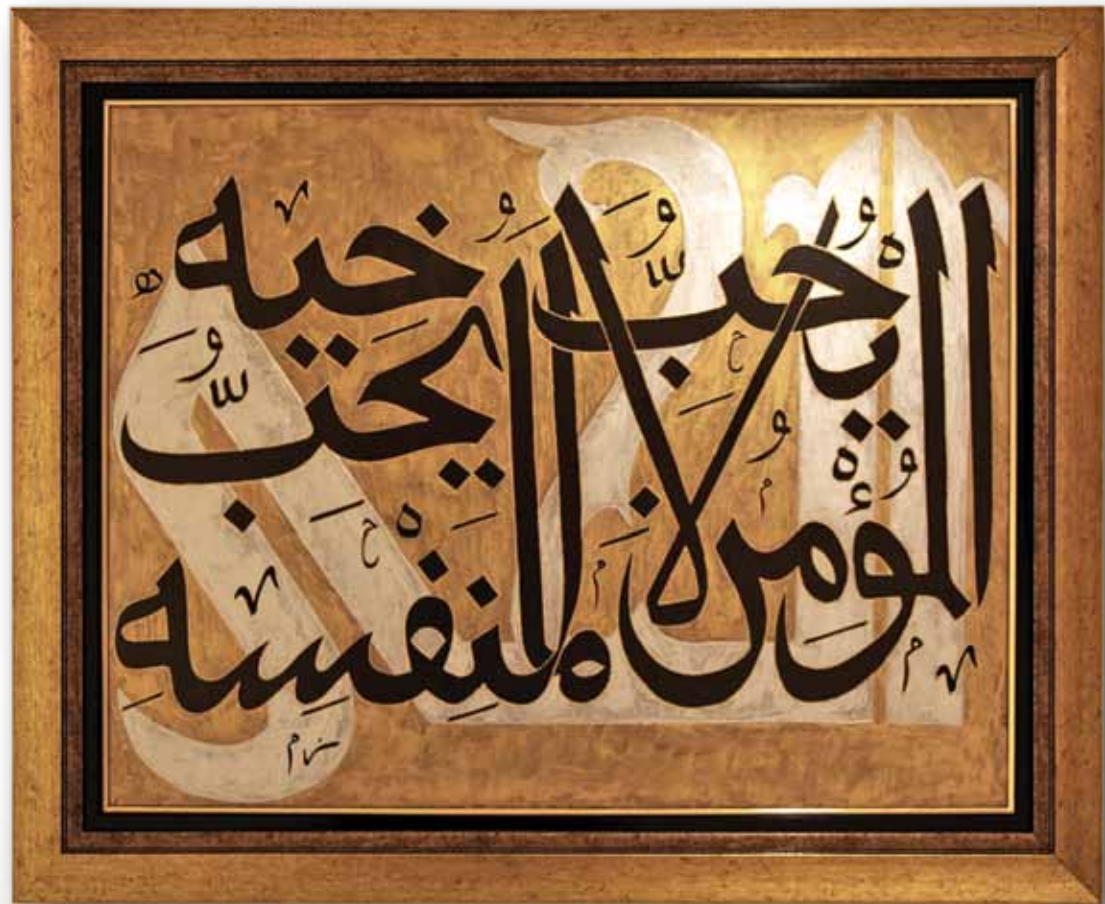 المؤمن يحبّ لاخيه ما يحبّ لنفسه